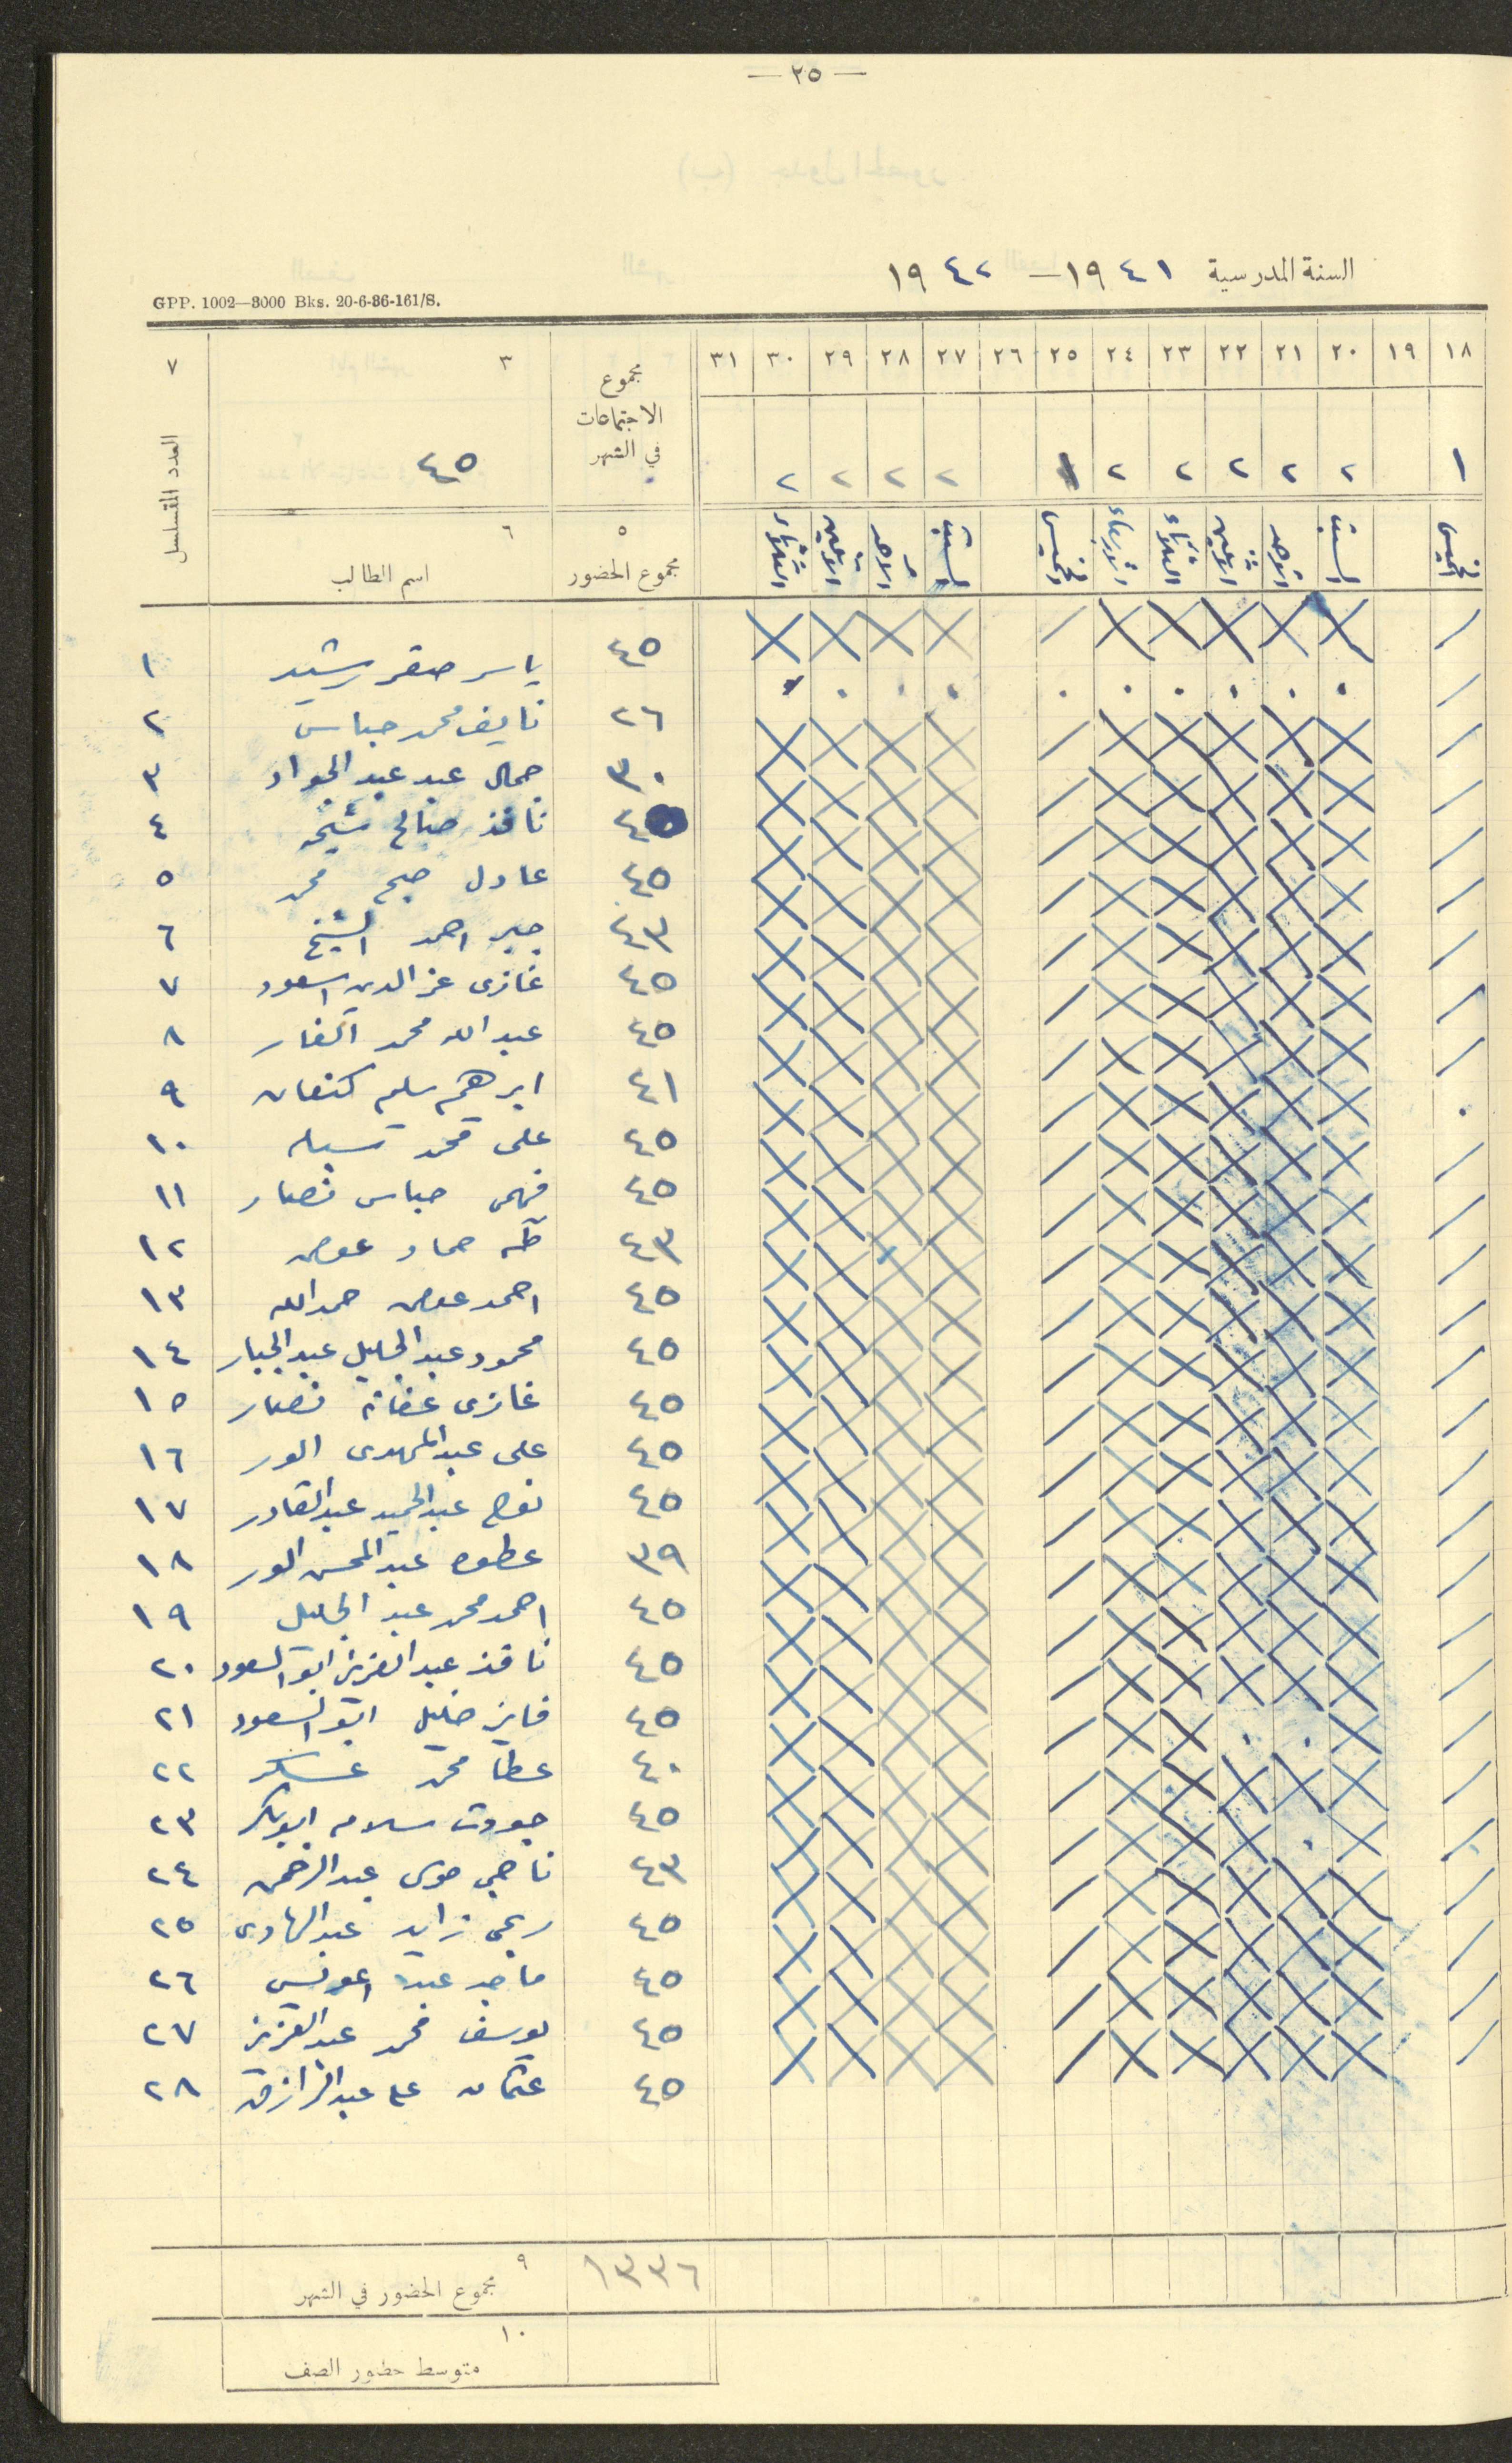 — ٢٥ —
السنة المدرسية ١٩٤١ — ١٩٤٢
GPP. 1002—3000 Bks. 20-6-36-161/S.
١٨ ١٩ ٢٠ ٢١ ٢٢ ٢٣ ٢٤ ٢٥ ٢٦ ٢٧ ٢٨ ٢٩ ٣٠ ٣١
مجموع الاجتماعات في الشهر
٣
٤٥
٧
العدد المتسلسل
١ ٢ ٢ ٢ ٢ ٢ ١ ٢ ٢ ٢ ٢
الخميس السبت الاحد الاثنين الثلاثاء الاربعاء الخميس السبت الاحد الاثنين الثلاثاء
٥
مجموع الحضور
٦
اسم الطالب
٤٥ ياسر صقر رشيد ١
٢٦ نايف محمد عباس ٢
٣٠ جمال عبد عبد الجواد ٣
٤ نافذ صالح شيخه ٤
٤٥ عادل صبح محمد ٥
٤٣ جبر احمد الشيخ ٦
٤٥ غازي عز الدين اسعود ٧
٤٥ عبد الله محمد الفار ٨
٤١ ابرهيم سليم كنعان ٩
٤٥ علي محمد ١٠
٤٥ فهمي عباس نصار ١١
٤٣ طه حماد عوض ١٢
٤٥ احمد عوض حمد الله ١٣
٤٥ محمود عبد الجليل عبد الجبار ١٤
٤٥ غازي نصار ١٥
٤٥ علي عبد المهدي الور ١٦
٤٥ نوح عبد الحميد عبد القادر ١٧
٣٩ عطوه عبد المحسن الور ١٨
٤٥ احمد محمد عبد الجليل ١٩
٤٥ نافذ عبد العزيز ابو السعود ٢٠
٤٥ فايز خليل ابو السعود ٢١
٤٠ عطا محمد عسكر ٢٢
٤٥ جودت سلامه ابو بكر ٢٣
٤٣ ناجي موسى عبد الرحمن ٢٤
٤٥ ربحي زايد عبد الهادي ٢٥
٤٥ ماجد عبد ٢٦
٤٥ يوسف محمد عبد العزيز ٢٧
٤٥ عثمان علي عبد الرازق ٢٨
١٣٣٦
٩
مجموع الحضور في الشهر
١٠
متوسط حضور الصف